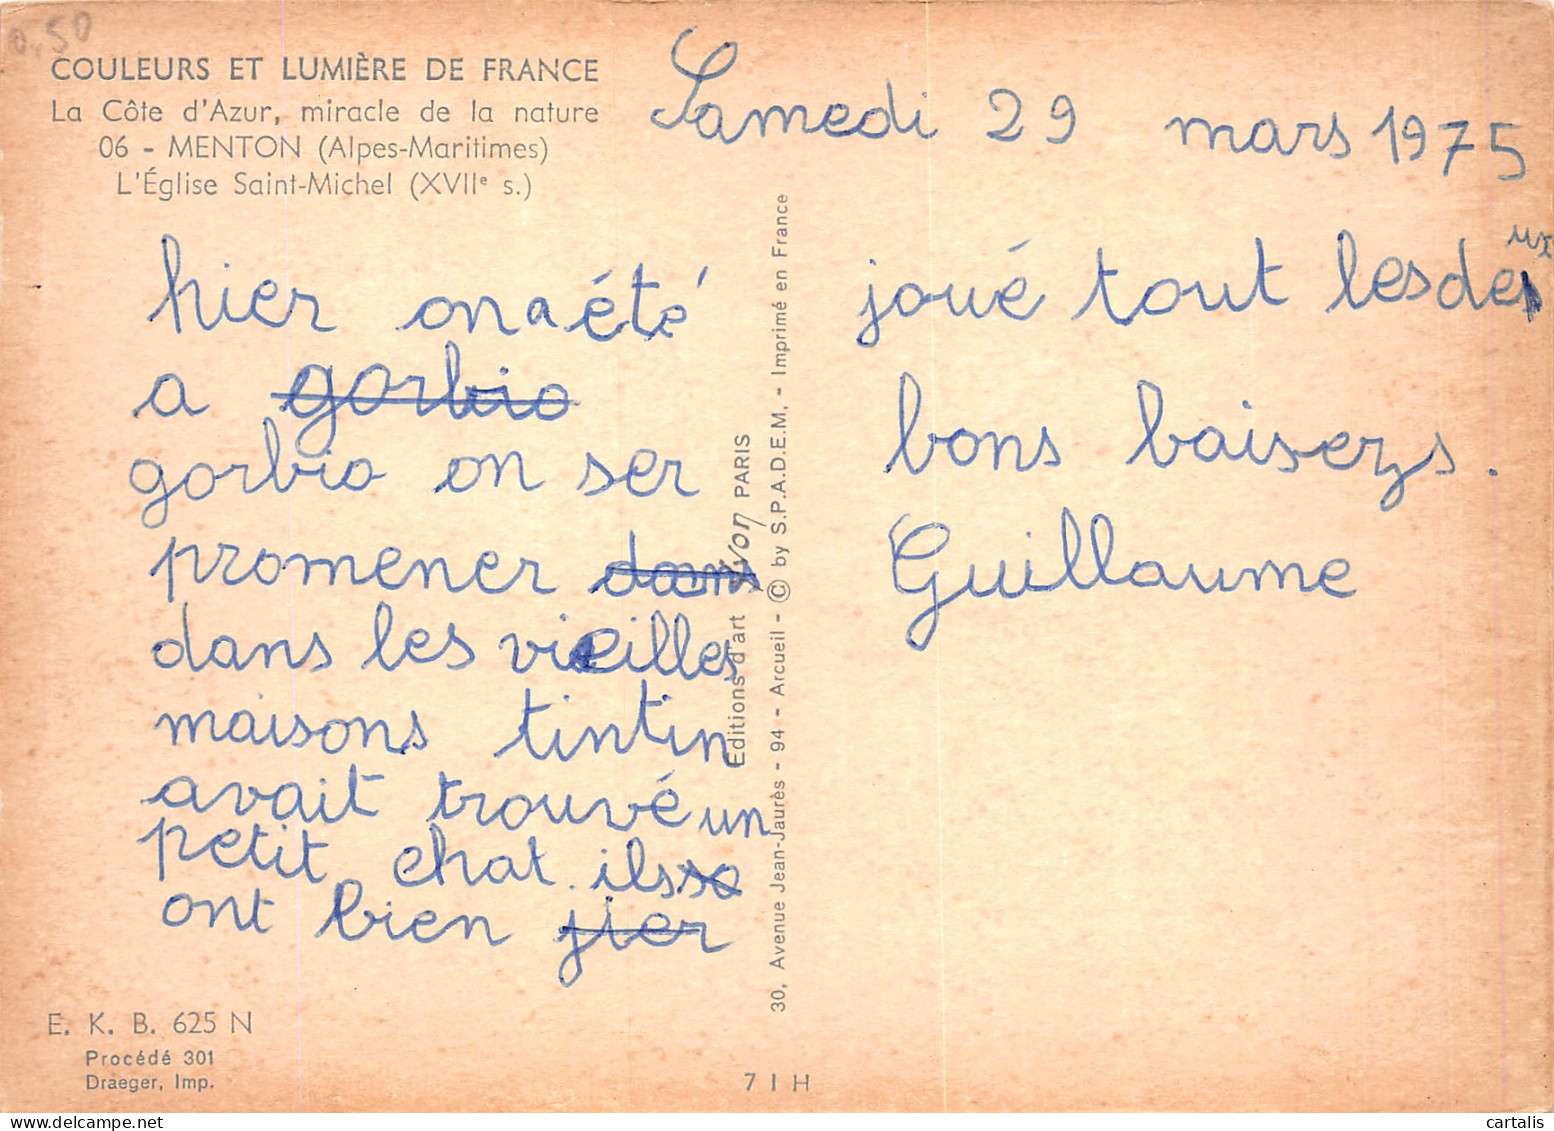 0.50
COULEURS ET LUMIÈRE DE FRANCE
La Côte d'Azur, miracle de la nature
06 - MENTON (Alpes-Maritimes)
L'Église Saint-Michel (XVIIe s.)
Samedi 29 mars 1975
hier on a été
a gorbio
gorbio on ser
promener dans
dans les vieilles
maisons tintin
avait trouvé un
petit chat. ils so
ont bien jier
joué tout les deux
bons baisezs.
Guillaume
Editions d'art Yvon PARIS
30, Avenue Jean-Jaurès - 94 - Arcueil - © by S.P.A.D.E.M. - Imprimé en France
E. K. B. 625 N
Procédé 301
Draeger, Imp.
7 I H
cartalis